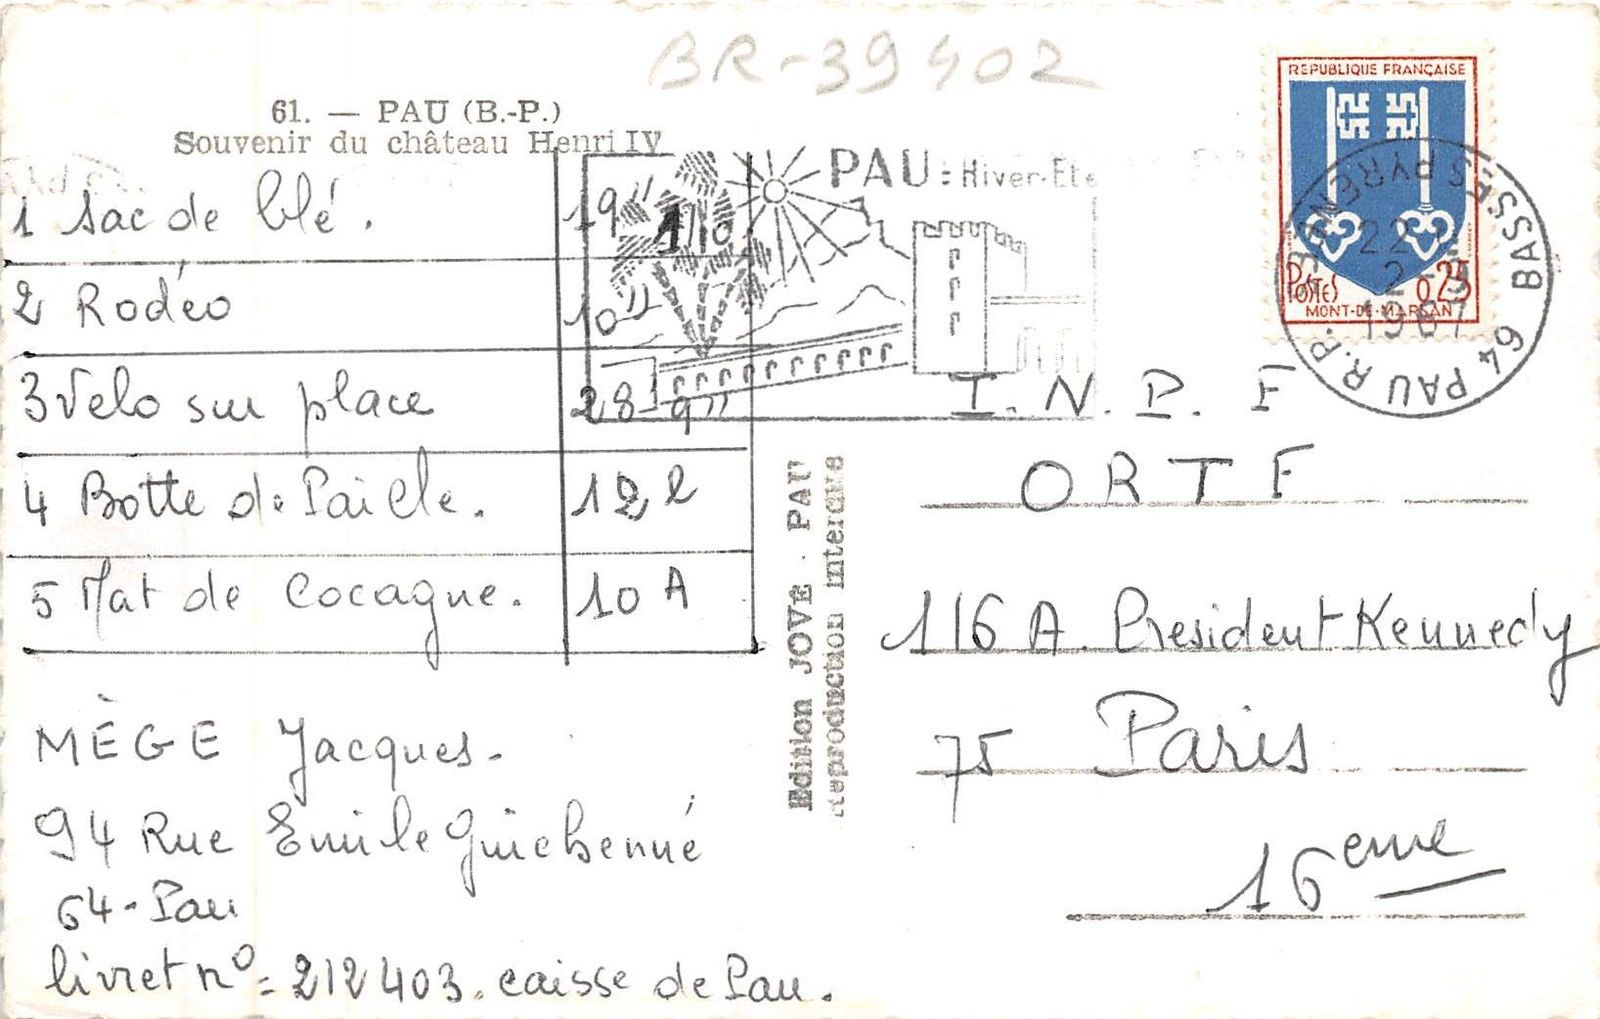 BR-39402
61. — PAU (B.-P.)
Souvenir du château Henri IV
PAU: Hiver-Eté
REPUBLIQUE FRANÇAISE
POSTES 0,25
MONT-DE-MARSAN
64 PAU R.P. BASSES PYRENEES
22
2
1967
1 Sac de blé. 19" 1/10
2 Rodéo 10"
3 Velo sur place 28" 9"
4 Botte de Paille. 12 2
5 Mat de Cocagne. 10 A
MÈGE Jacques.
94 Rue Emile Guichenné
64 - Pau
livret n° = 212403. caisse de Pau.
Edition JOVE - PAU
Reproduction interdite
I. N. P. F
ORTF
116 A. President Kennedy
75 Paris
16eme